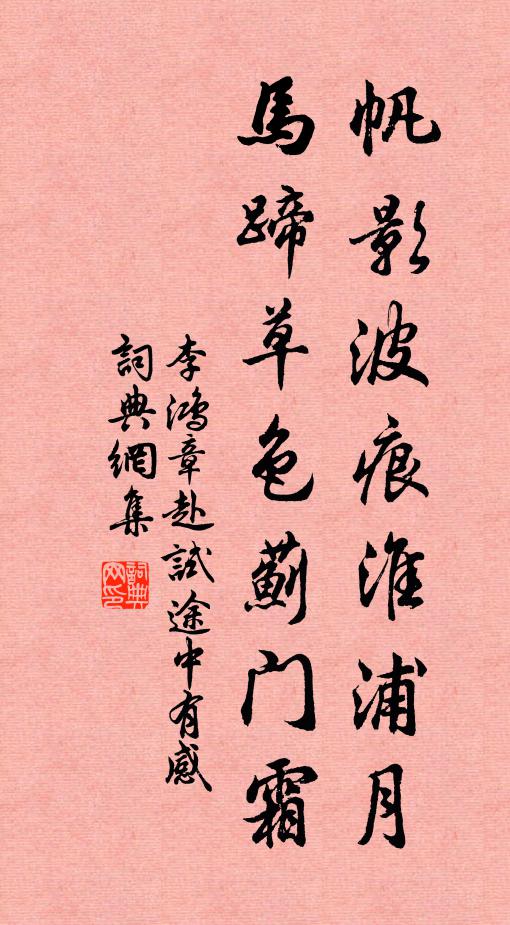 帆影波痕淮浦月
馬蹄草色薊门霜
李鴻章赴試途中有感
詞典網集
詞典
网印